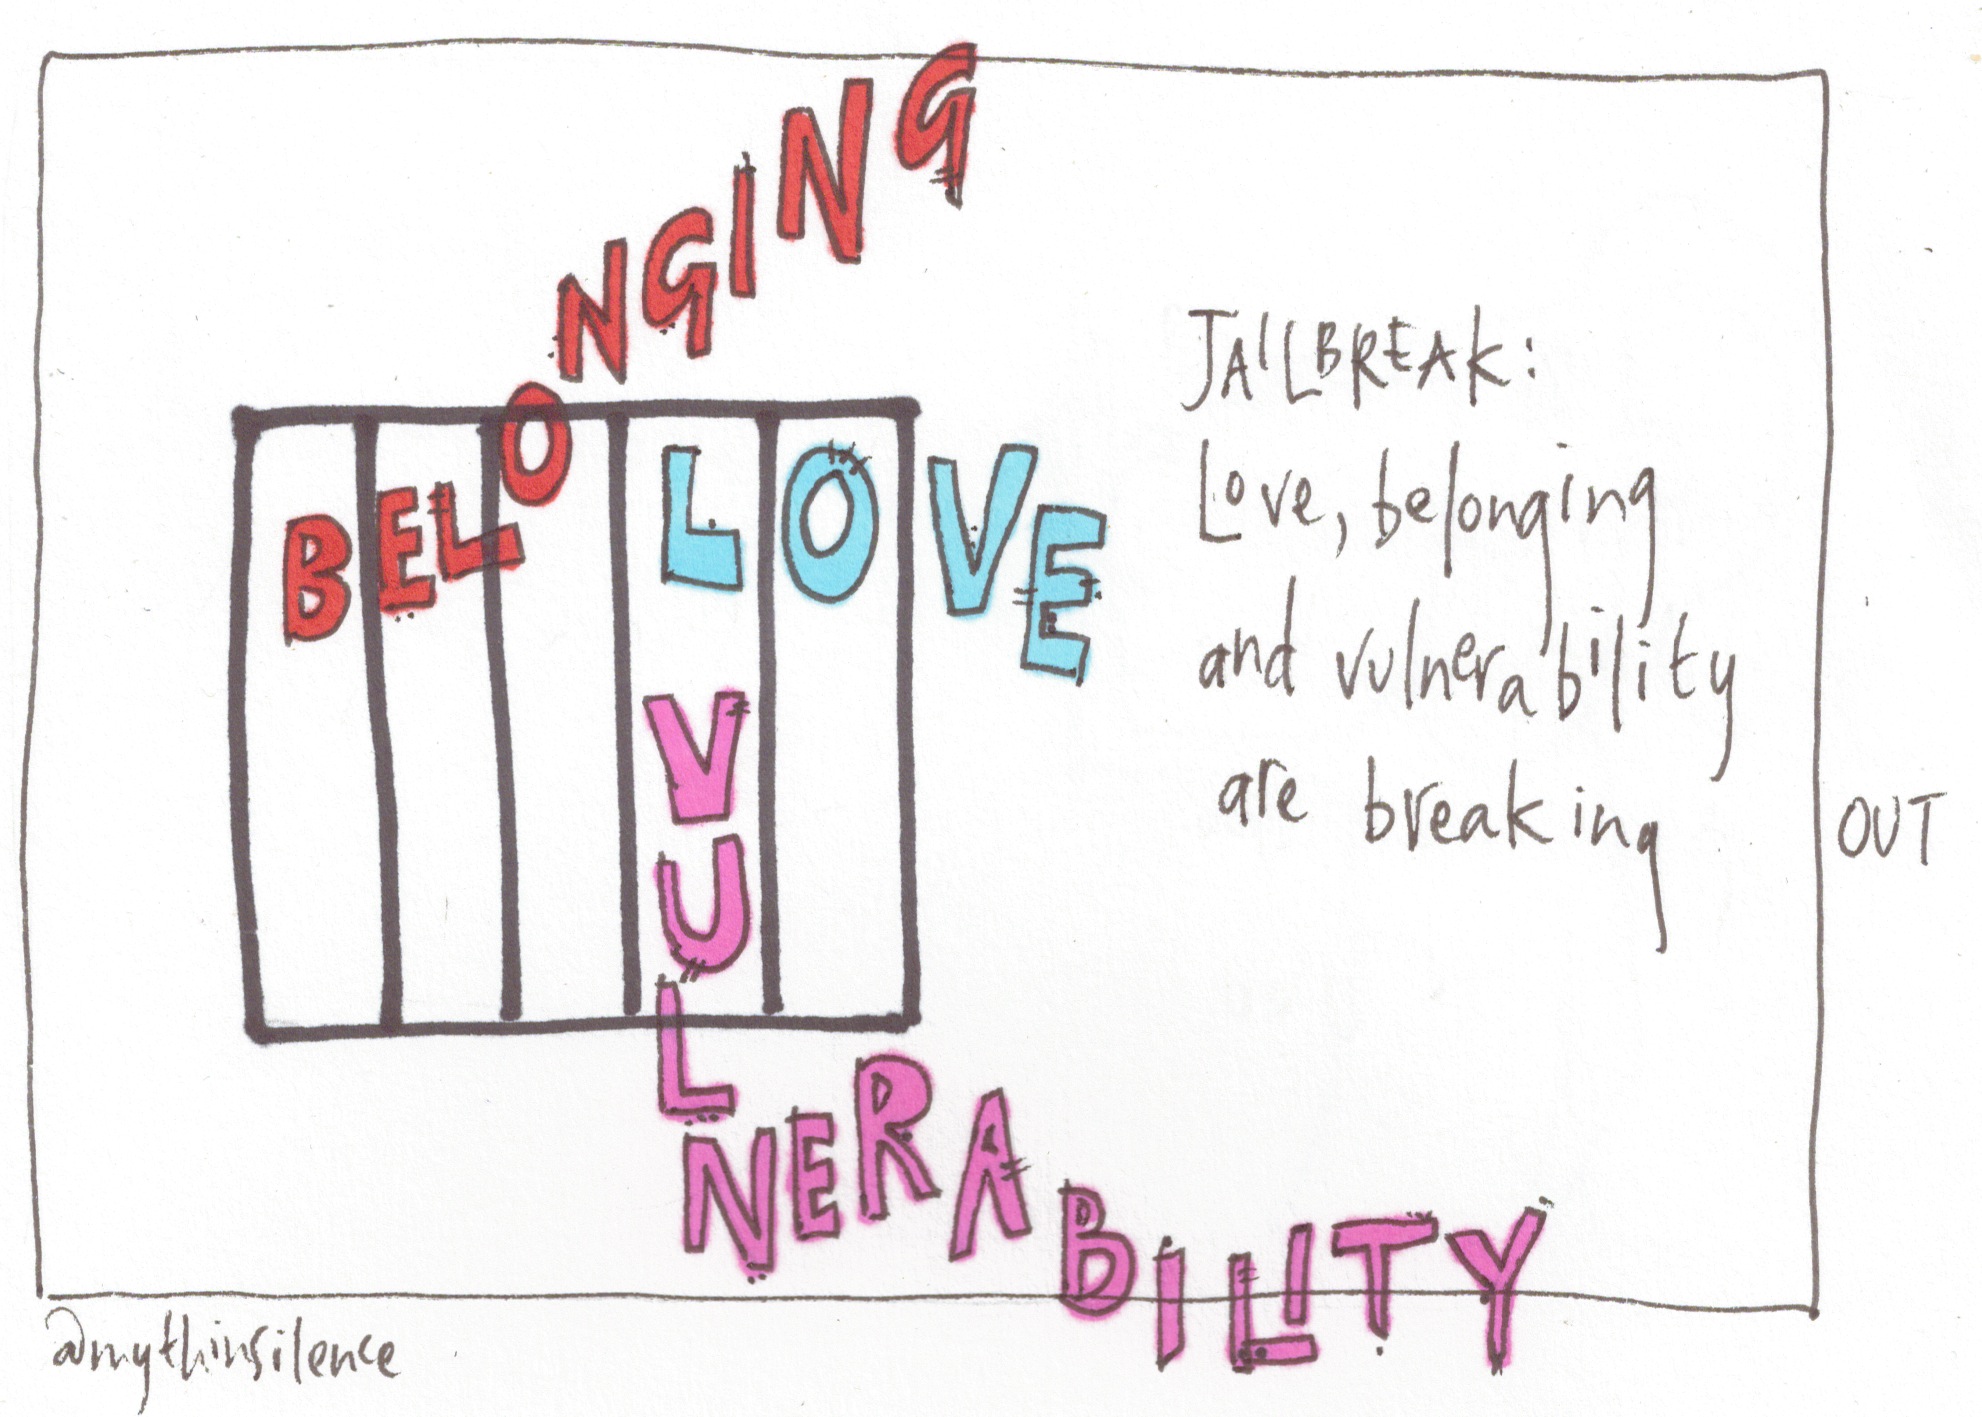 BELONGING
LOVE
VULNERABILITY
JAILBREAK:
Love, belonging
and vulnerability
are breaking OUT
@mythinsilence